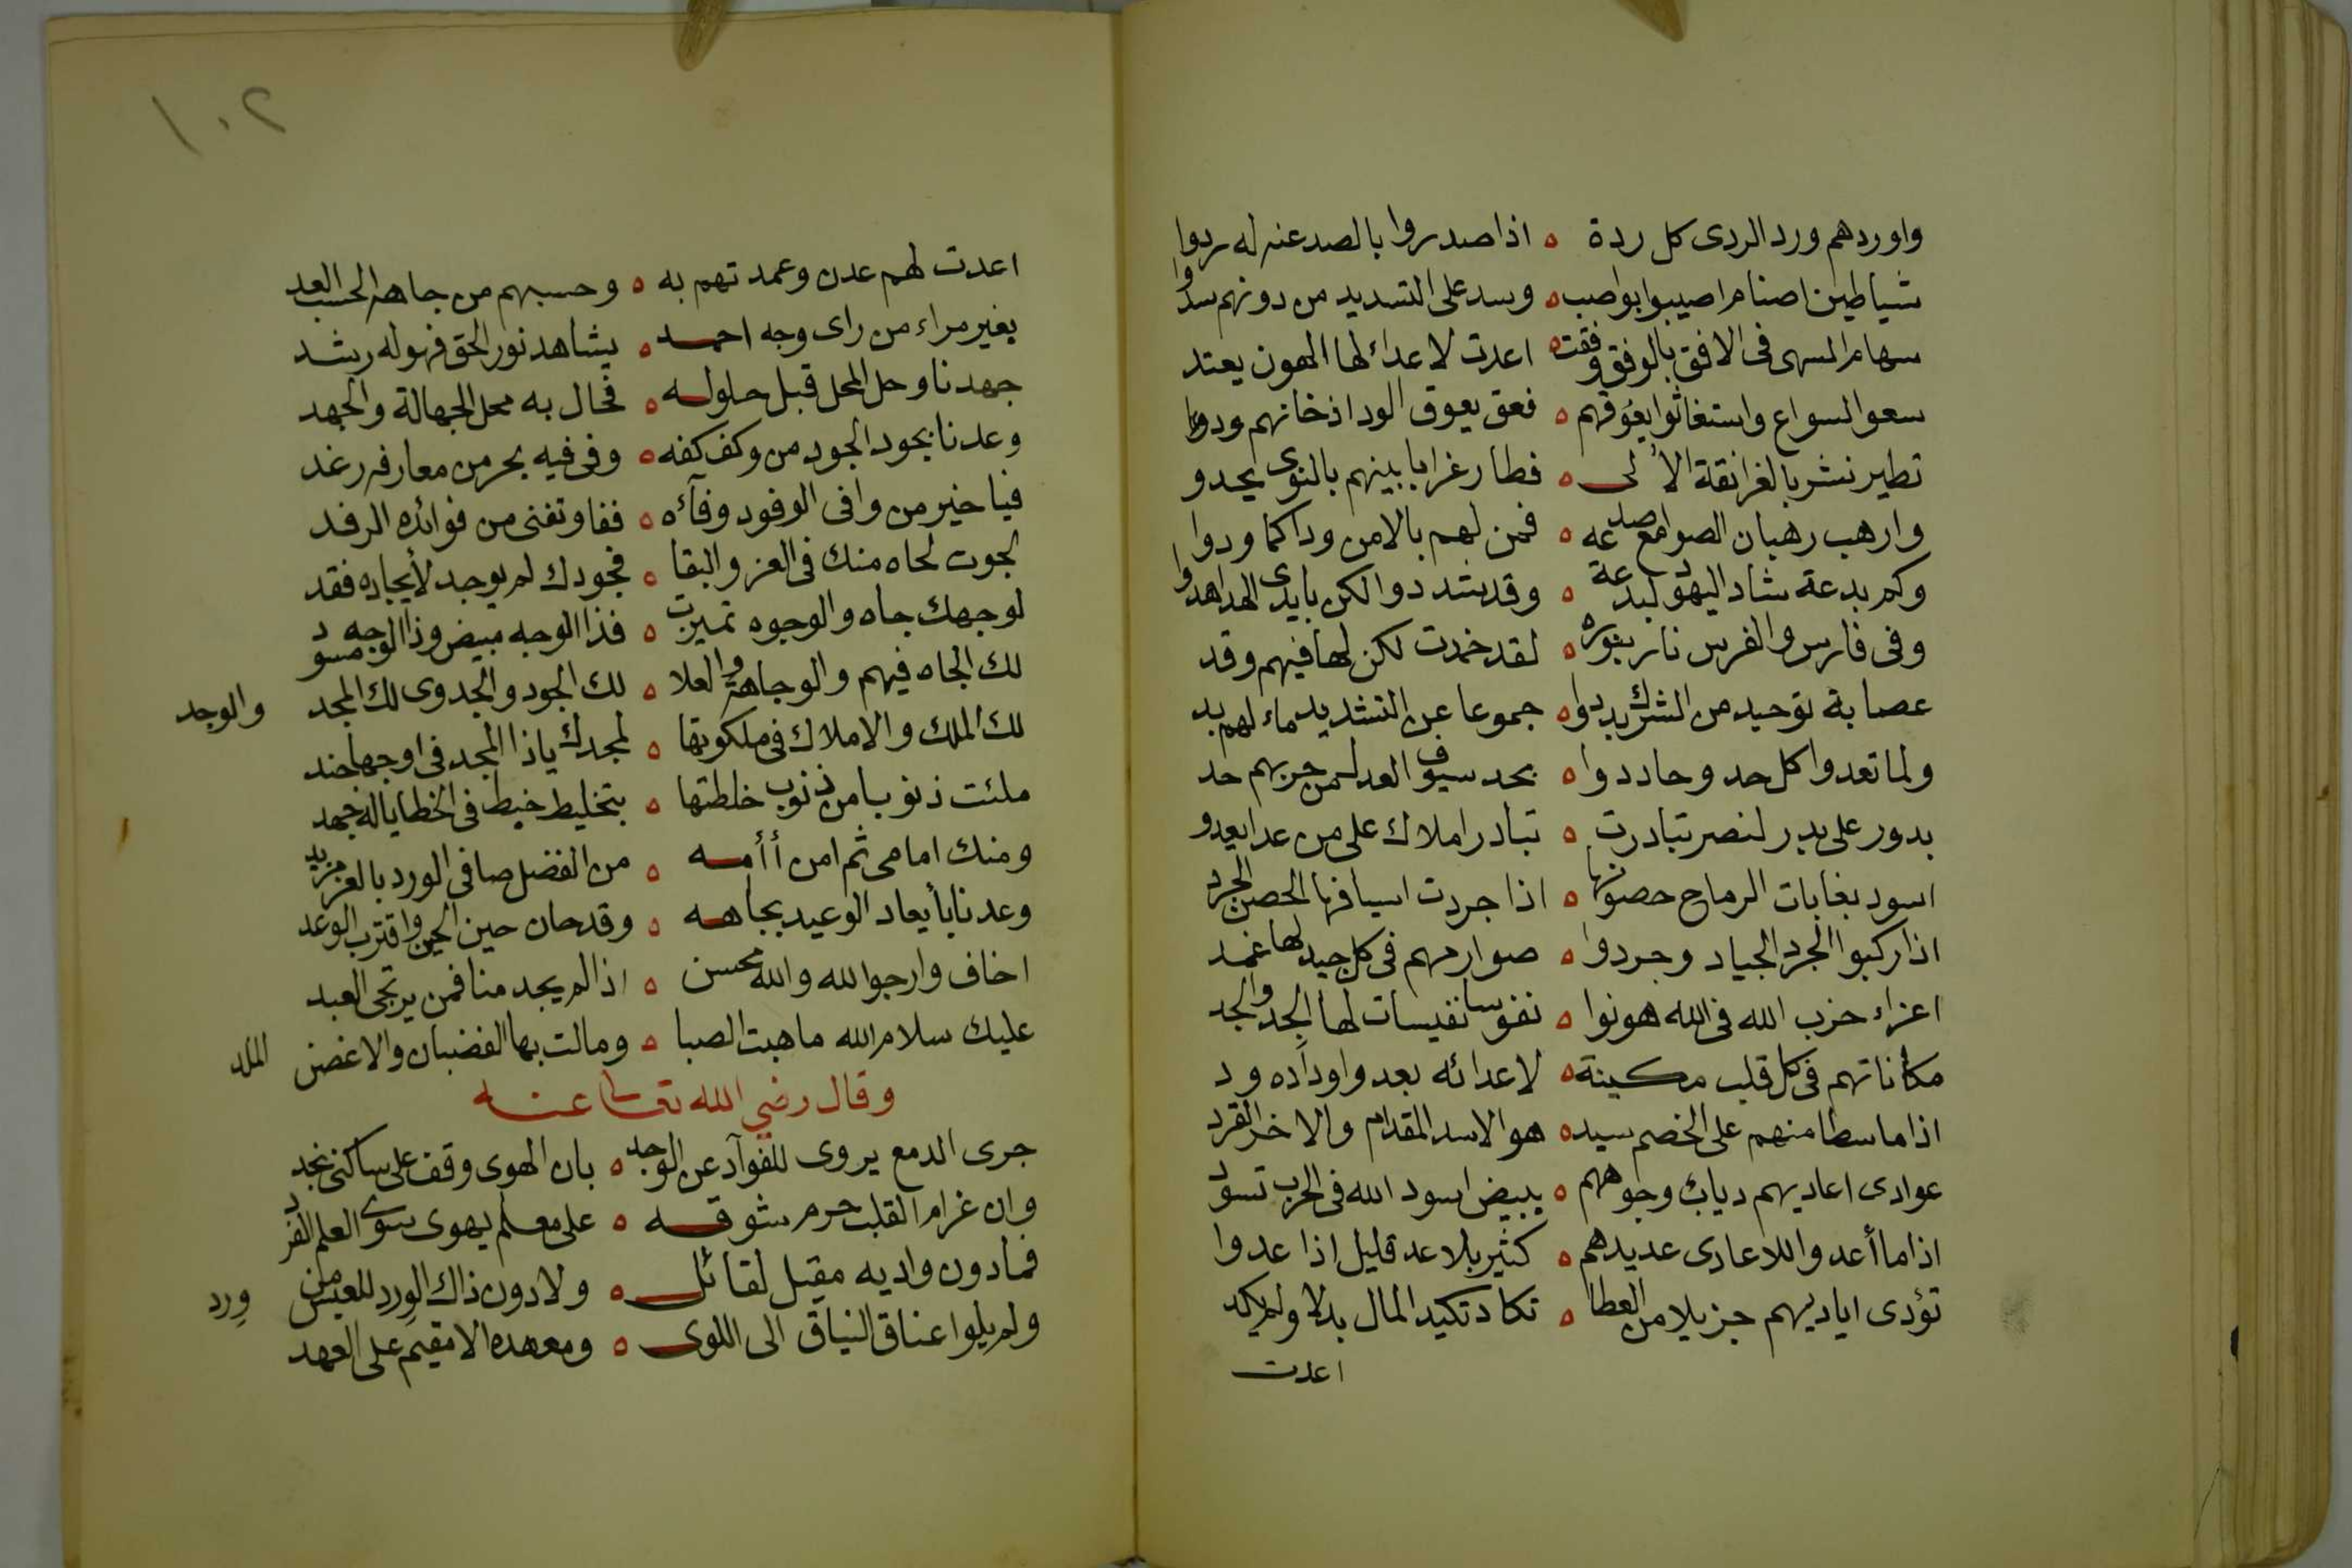 واوردهم ورد الردى كل ردة ه اذا صدروا بالصد عنه له ردوا
شياطين اصنام اصيبوا بواصب ه وسد على التسديد من دونهم سدوا
سهام السهى فى الافق بالوفق وفقت ه اعدت لاعداء لها الهون يعتد
سعوا لسواع واستغاثوا يغوثهم ه فعق يعوق الود اذ خانهم ود
تطير نشر بالغرانقة الألى ه فطار غرابا بينهم بالنوى يحدو
وارهب رهبان الصوامع صدعه ه فمن لهم بالامن وداكما ودوا
وكم بدعة شاد اليهود لبدعة ه وقد شددوا لكن بايدى الهدا هدوا
وفى فارس والفرس نار بنوره ه لقد خمدت لكن لها فيهم وقد
عصابة توحيد من الشرك بددوا ه جموعا عن التشديد ماء لهم بد
ولما تعدوا كل حد وحاددوا ه بحد سيوف العدل من حربهم حد
بدور على بدر لنصر تبادرت ه تبادر املاك على من عدا يعدو
اسود بغابات الرماح حصونها ه اذا جردت اسيافها الحصن الجرد
اذا ركبوا الجرد الجياد وجردوا ه صوارمهم فى كل جيد لها غمد
اعزاء حزب الله فى الله هونوا ه نفوسا نفيسات لها الجد والجد
مكاناتهم فى كل قلب مكينة ه لاعدائه بعد واوداده ود
اذا ما سطا منهم على الخصم سيد ه هو الاسد المقدام والاخر القرد
عوادى اعاديهم دياب وجوههم ه ببيض اسود الله فى الحرب تسود
اذا ما أعدوا للاعادى عديدهم ه كثير بلا عد قليل اذا عدوا
تؤدى اياديهم جزيلا من العطا ه تكاد تكيد المال بذلا ولم يكد
اعدت
١٠٢
اعدت لهم عدن وعمدتهم به ه وحسبهم من جاهه الحسب العد
بغير مراء من راى وجه احمد ه يشاهد نور الحق فهو له رشد
جهدنا وحل المحل قبل حلوله ه فحال به محل الجهالة والجهد
وعدنا بجود الجود من وكف كفه ه وفى فيه بحر من معارفه رغد
فيا خير من وافى الوفود وفآءه ه ففاو تفنى من فوائده الرفد
لجوت لحاه منك فى العز والبقا ه فجودك لم يوجد لأيجاده فقد
لوجهك جاه والوجوه تميزت ه فذا الوجه مبيض وذا الوجه مسود
لك الجاه فيهم والوجاهة والعلا ه لك الجود والجدوى لك المجد والوجد
لك الملك والاملاك فى ملكوتها ه لمجدك ياذا المجد فى اوجها جند
ملئت ذنوبا من ذنوب خلطتها ه بتخليط خبط فى الخطايا له جهد
ومنك امامى ثم امن أأمه ه من الفضل صافى الورد بالعز مزبد
وعدنا بأيعاد الوعيد بجاهه ه وقد حان حين الحين واقترب الوعد
اخاف وارجو الله والله محسن ه اذا لم يجد منا فمن يرتجى العبد
عليك سلام الله ما هبت الصبا ه ومالت بها القضبان والاغصن الملد
وقال رضي الله تعالى عنه
جرى الدمع يروى للفوآد عن الوجد ه بان الهوى وقف على ساكنى نجد
وان غرام القلب حرم شوقه ه على معلم يهوى سوى العلم الفرد
فما دون واديه مقيل لقائل ه ولا دون ذاك الورد للعيس من ورد
ولم يلوا عناق النياق الى اللوى ه ومعهده الا مقيم على العهد